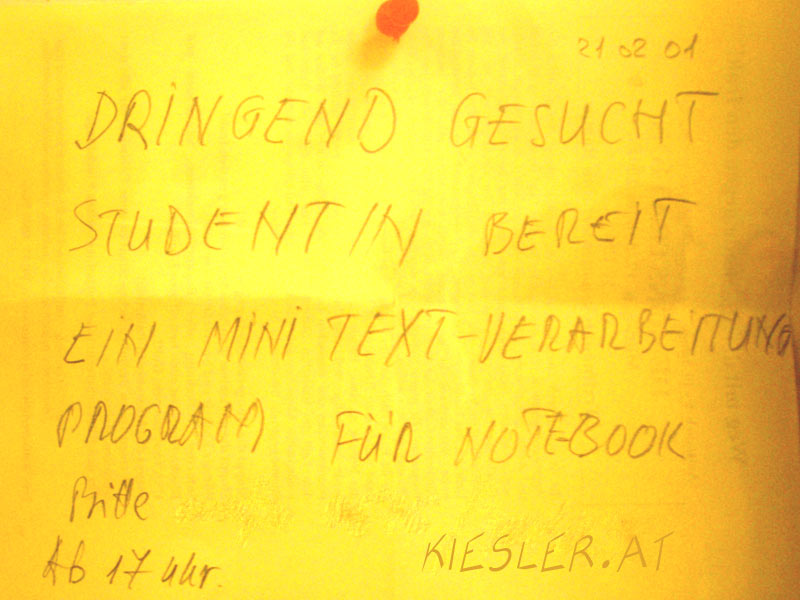 21 02 01
DRINGEND GESUCHT
STUDENTIN BEREIT
EIN MINI TEXT-VERARBEITUNG
PROGRAM FÜR NOTEBOOK
Bitte
Ab 17 Uhr.
KIESLER.AT